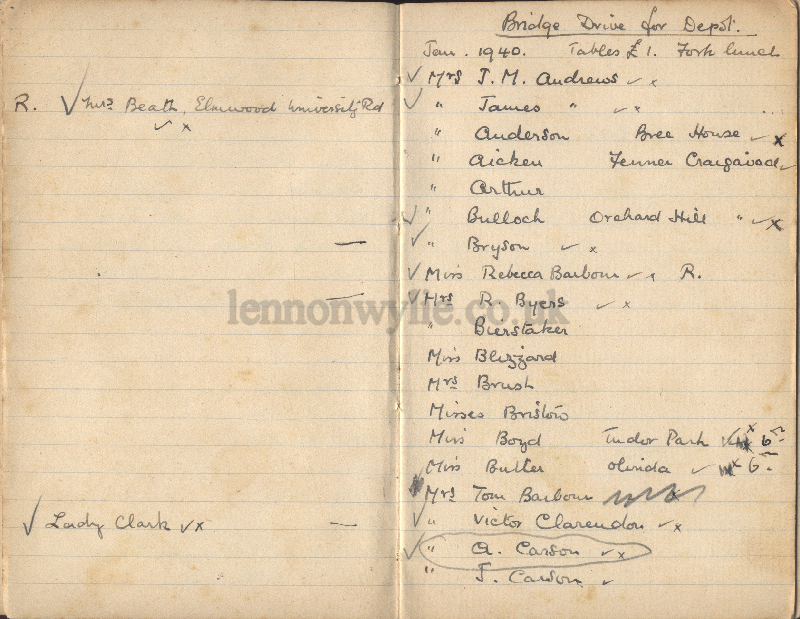 R. √ Mrs Beath, Elmwood University Rd
✓ x
√ Lady Clark ✓x —
Bridge Drive for Depôt.
Jan. 1940. Tables £1. Fork lunch
✓ Mrs J. M. Andrews ✓ x
✓ " James " ✓ x
" Anderson Bree House ✓ x
" Aicken Craigavad ✓
" Arthur
✓ " Bulloch Orchard Hill " ✓ x
✓ " Bryson ✓ x
✓ Miss Rebecca Barbour ✓ x R.
✓ Mrs R. Byers ✓ x
" Bierstaker
Miss Blizzard
Mrs Brush
Misses Bristow
Miss Boyd Tudor Park ✓ x 6
Miss Butler ✓ x 6
Mrs Tom Barbour
✓ " Victor Clarendon ✓ x
✓ " A. Carson ✓ x
" J. Carson ✓
lennonwylie.co.uk